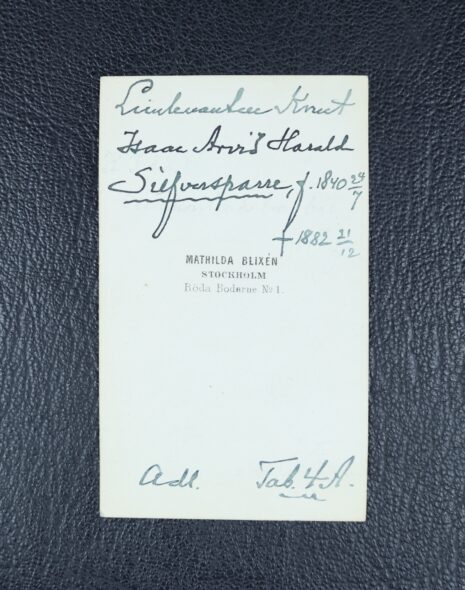 Lieutenanten Knut
Isaac Arvid Harald
Silfversparre, f. 1840 24/7
† 1882 21/12
MATHILDA BLIXÉN
STOCKHOLM
Röda Bodarne No 1.
Adl. Tab. 4 A.